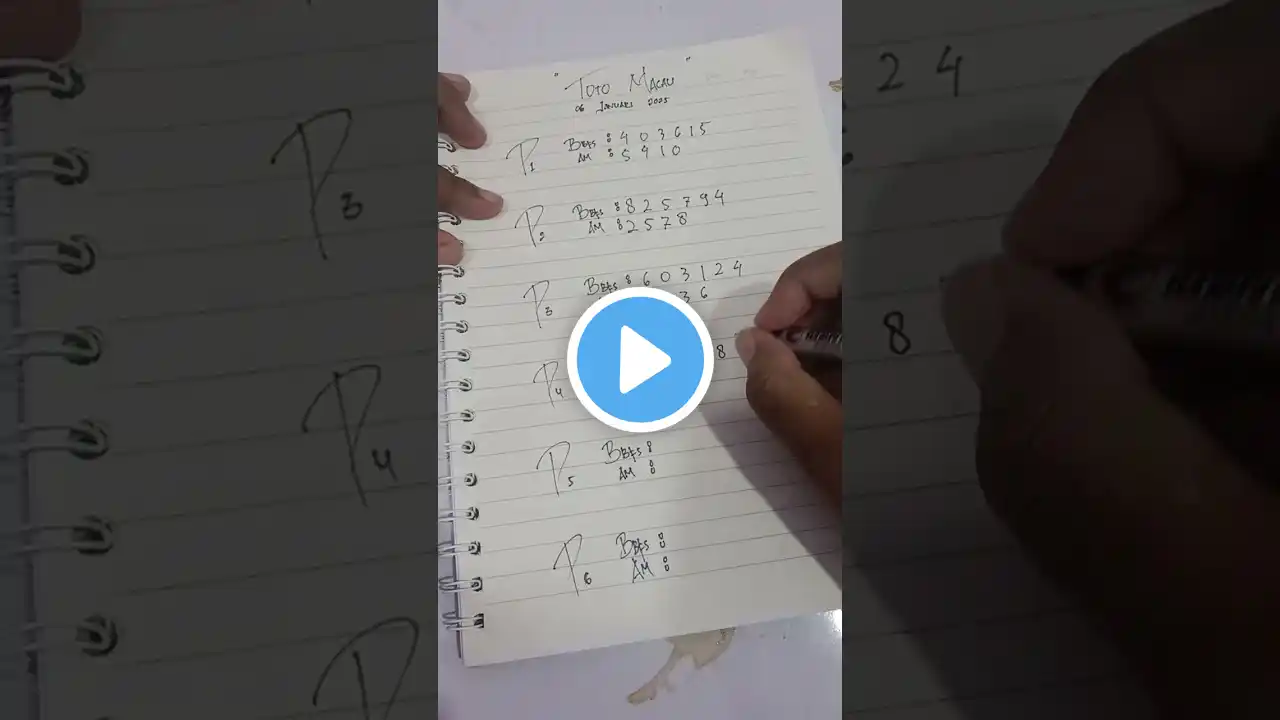 " TOTO MACAU "
06 JANUARI 2025
P1 BBFS : 4 0 3 6 1 5
AM : 5 4 1 0
P2 BBFS : 8 2 5 7 9 4
AM : 2 5 7 8
P3 BBFS : 6 0 3 1 2 4
3 6
P4 8
P5 BBFS :
AM :
P6 BBFS :
AM :